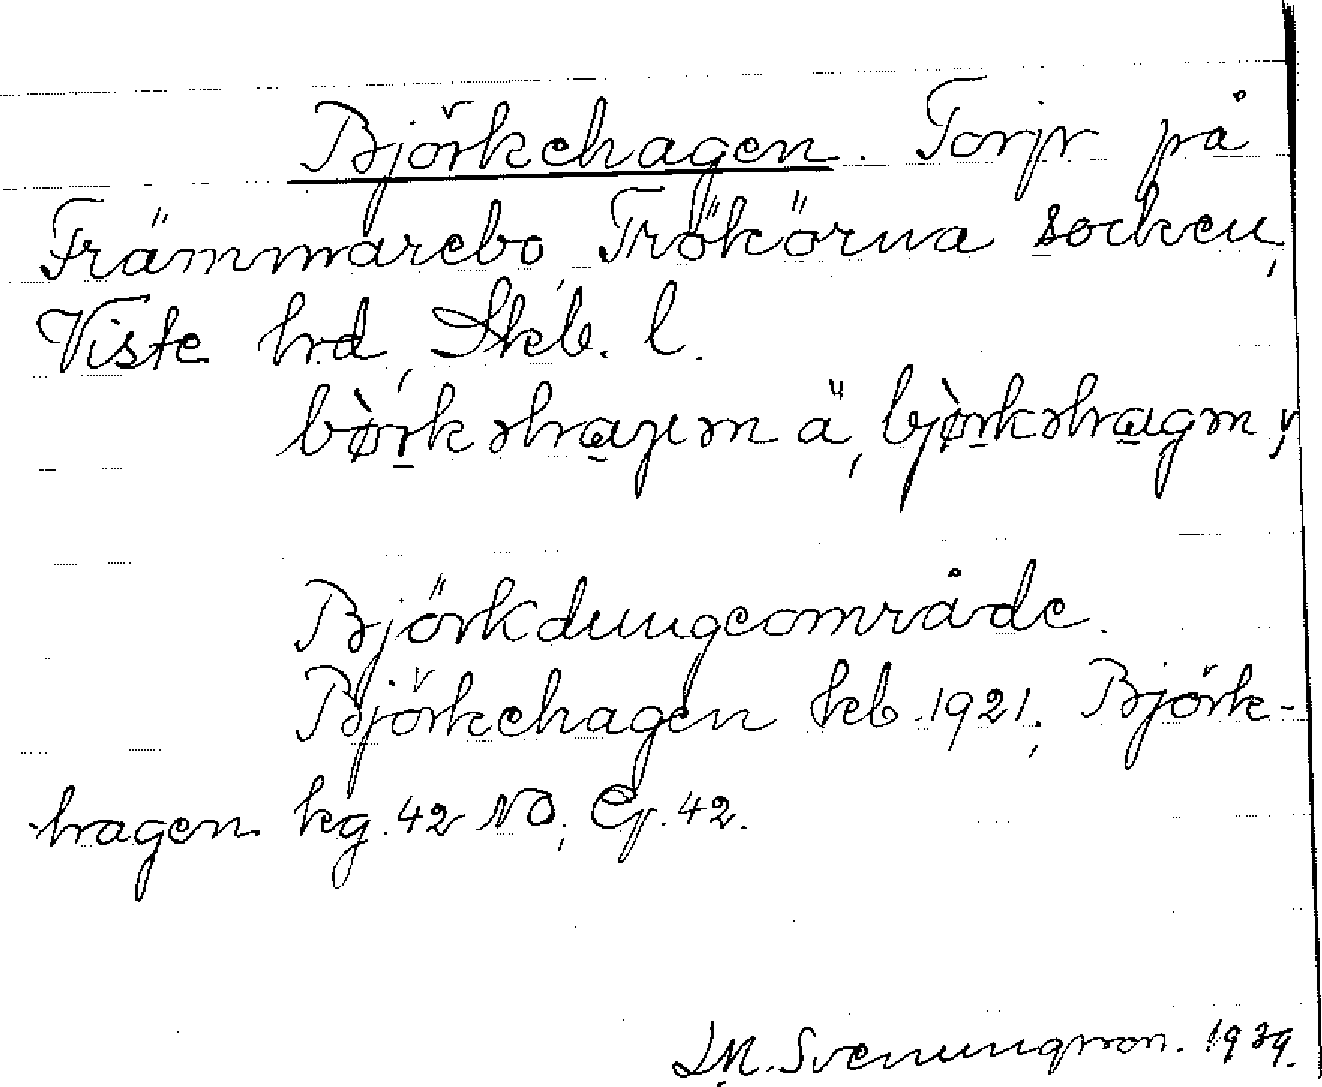 Björkehagen. Torp på
Främmarebo, Trökörna socken,
Viste hd, Skb. l.
bø̀rkəhaɡən ä, bjø̀rkəhagən y
Björkdungeområde.
Björkehagen kb. 1921; Björk-
hagen hg. 42 NO, Eg. 42.
Svenungsson. 1939.